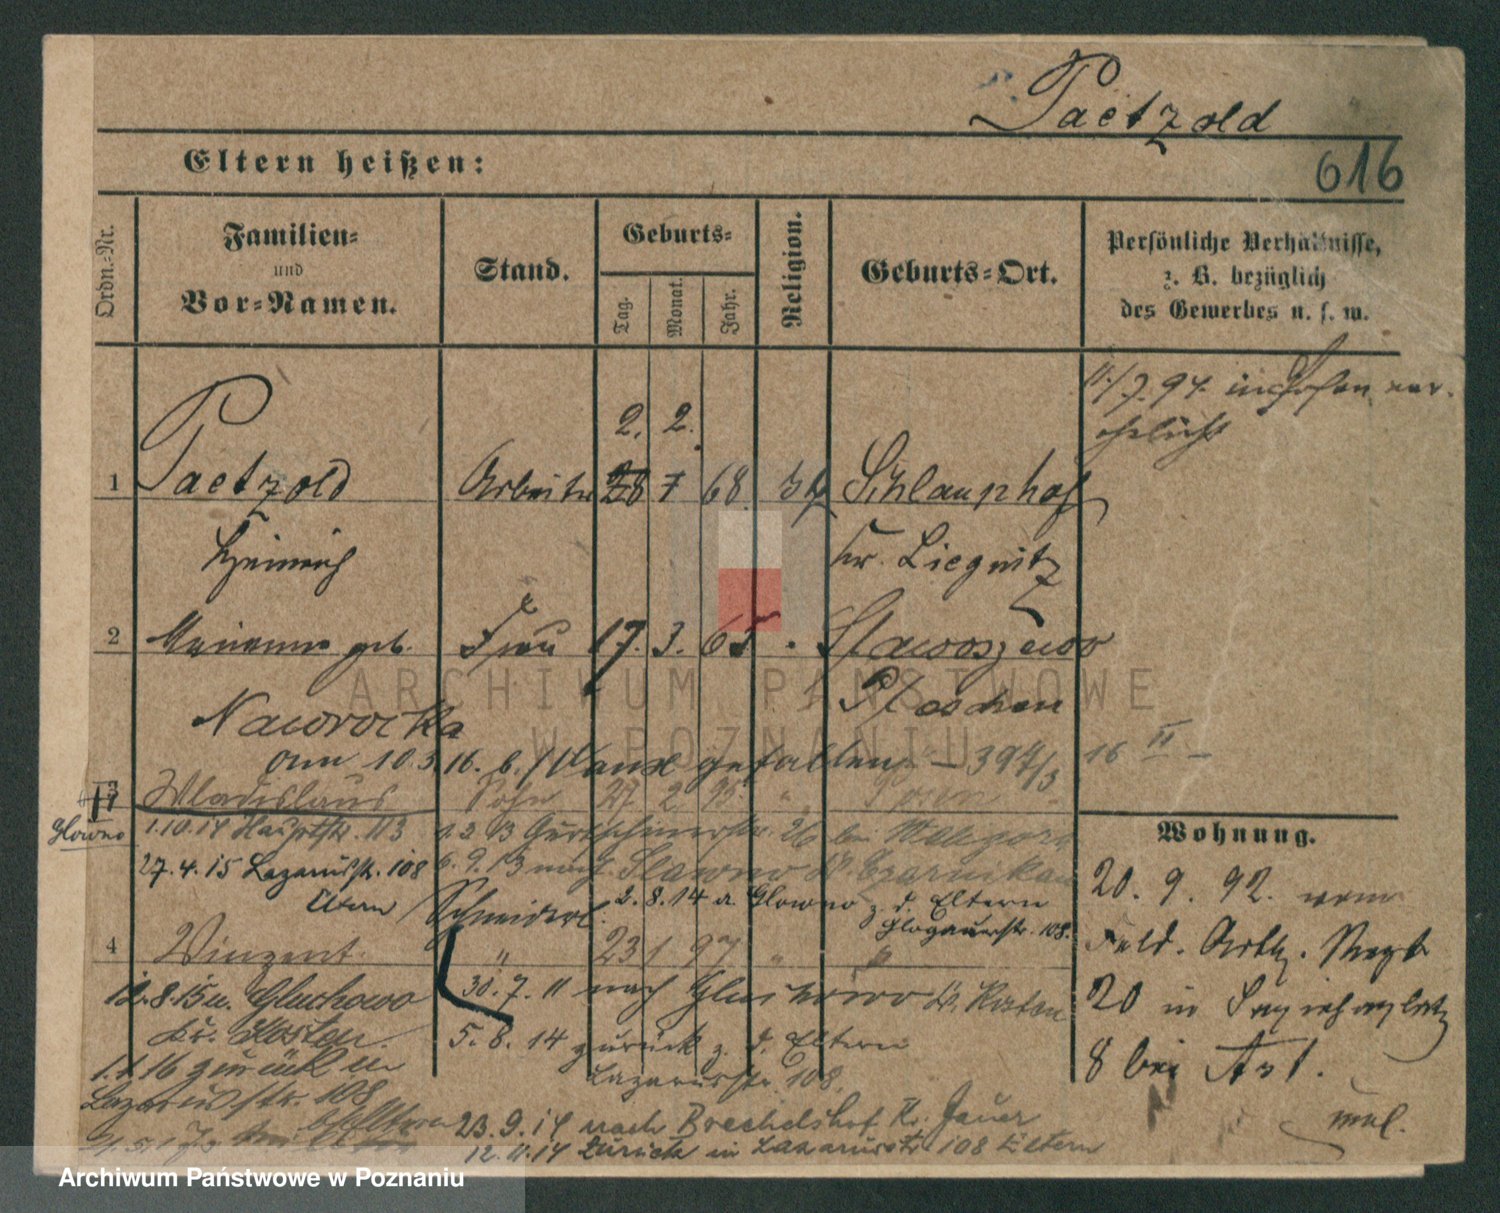 Paetzold
616
Eltern heißen:
Ordn.-Nr.
Familien-
und
Vor-Namen.
Stand.
Geburts-
Tag.
Monat.
Jahr.
Religion.
Geburts-Ort.
Persönliche Verhältnisse,
z. B. bezüglich
des Gewerbes u. s. w.
11./7. 94. in Posen ver-
ehelicht
2. 2.
1 Paetzold Arbeiter 28 7 68 Schlauphof
Heinrich Kr. Liegnitz
2 Marianna geb. Frau 17. 3. 65 Slawoszewo
Nawrocka Pleschen
am 10.3.16. b. / Vaux gefallen – 397/3 16 II –
3 Wladislaus Sohn 27. 2. 95. " Posen
Glowno 1.10.14 Hauptstr. 113 26 bei
27.4.15 Lazarusstr. 108 6.9.13 nach Slawno Kr. Czarnikau
Eltern Schneiderl. 2.8.14 a. Glowno z. d. Eltern
Glogauerstr. 108.
4 Vinzent " 23 1 97 " "
12.8.15 n. Gluchowo 30.7.11 nach Gluchowo Kr. Kosten
Kr. Kosten. 5.8.14 zurück z. d. Eltern
1.1.16 zurück Lazarusstr. 108.
Lazarusstr. 108
23.9.14 nach Brechelshof Kr. Jauer
12.11.14 zurück in Lazarusstr. 108 Eltern
Wohnung.
20. 9. 92. vom
Feld. Artl. Regt
20 in
8 bei Ast.
ARCHIWUM PAŃSTWOWE
W POZNANIU
Archiwum Państwowe w Poznaniu